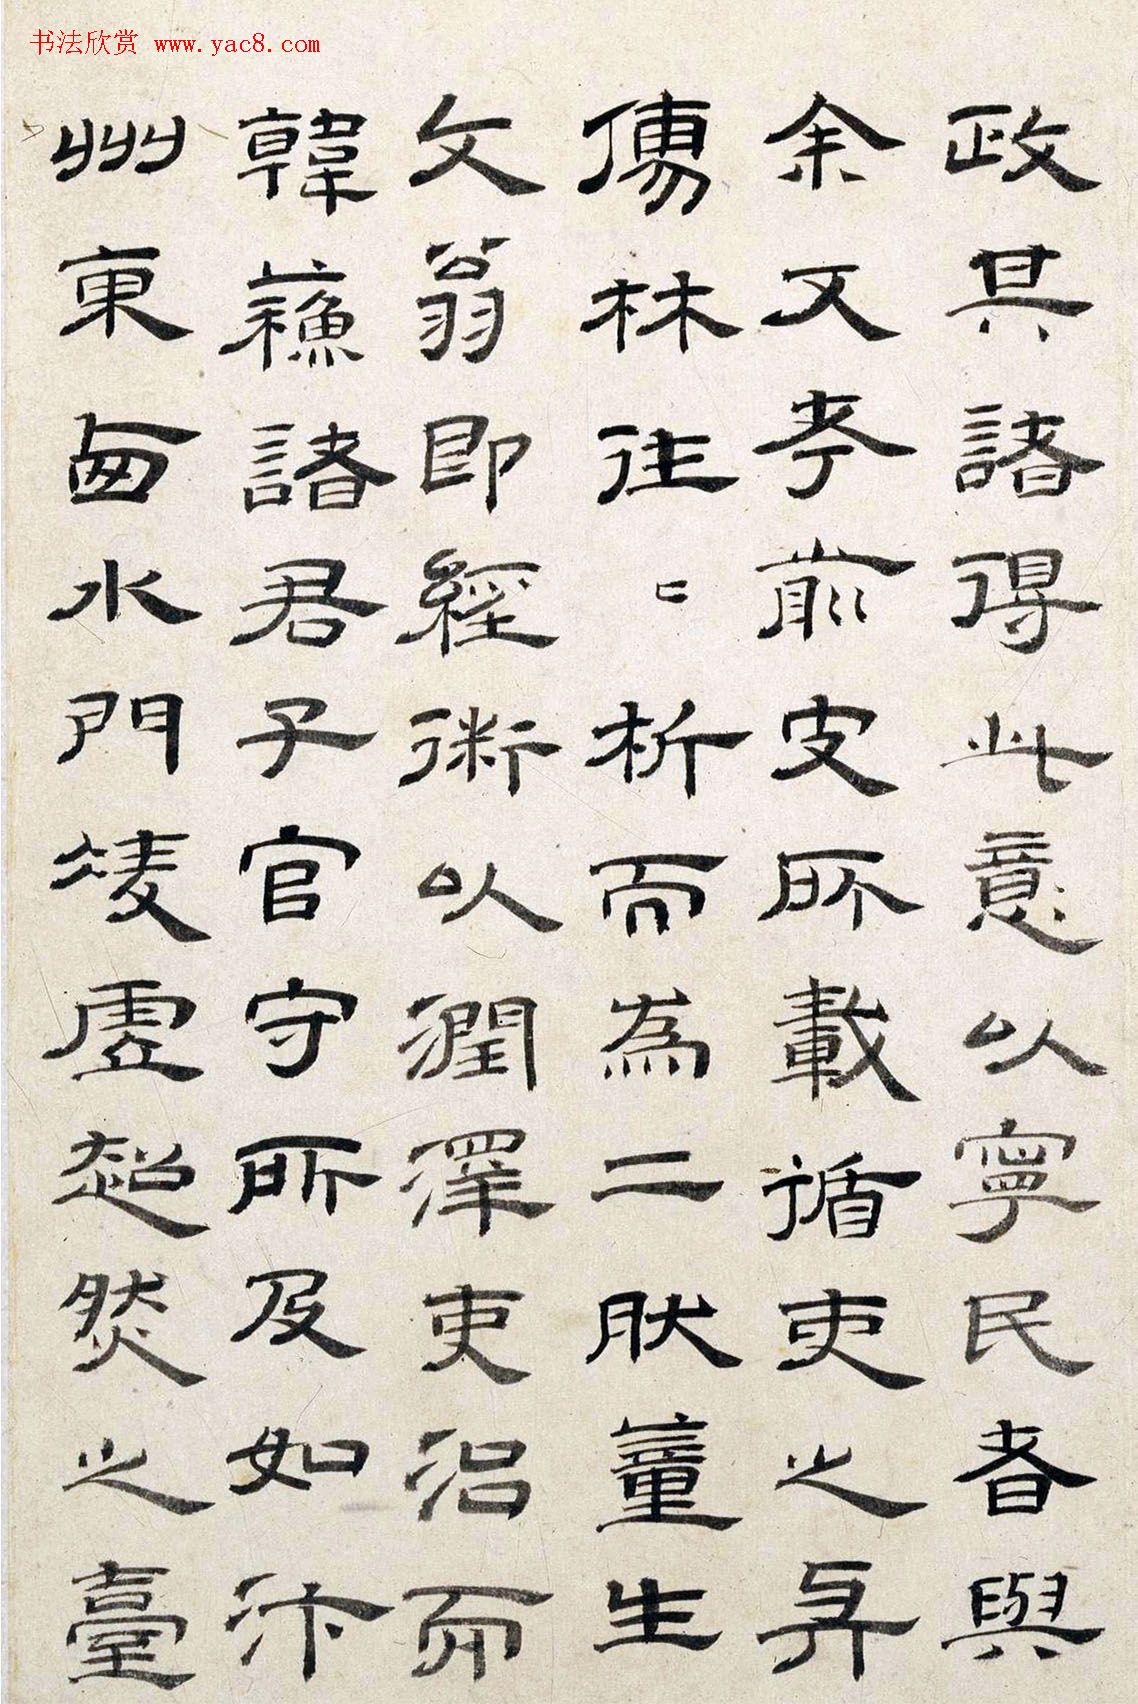 书法欣赏 www.yac8.com
政其諸得此意以寧民者與
余又考前史所載循吏之與
儒林往〻析而為二肰董生
文翁即經術以潤澤吏治而
韓蘇諸君子官守所及如汴
州東西水門凌虛超然之臺